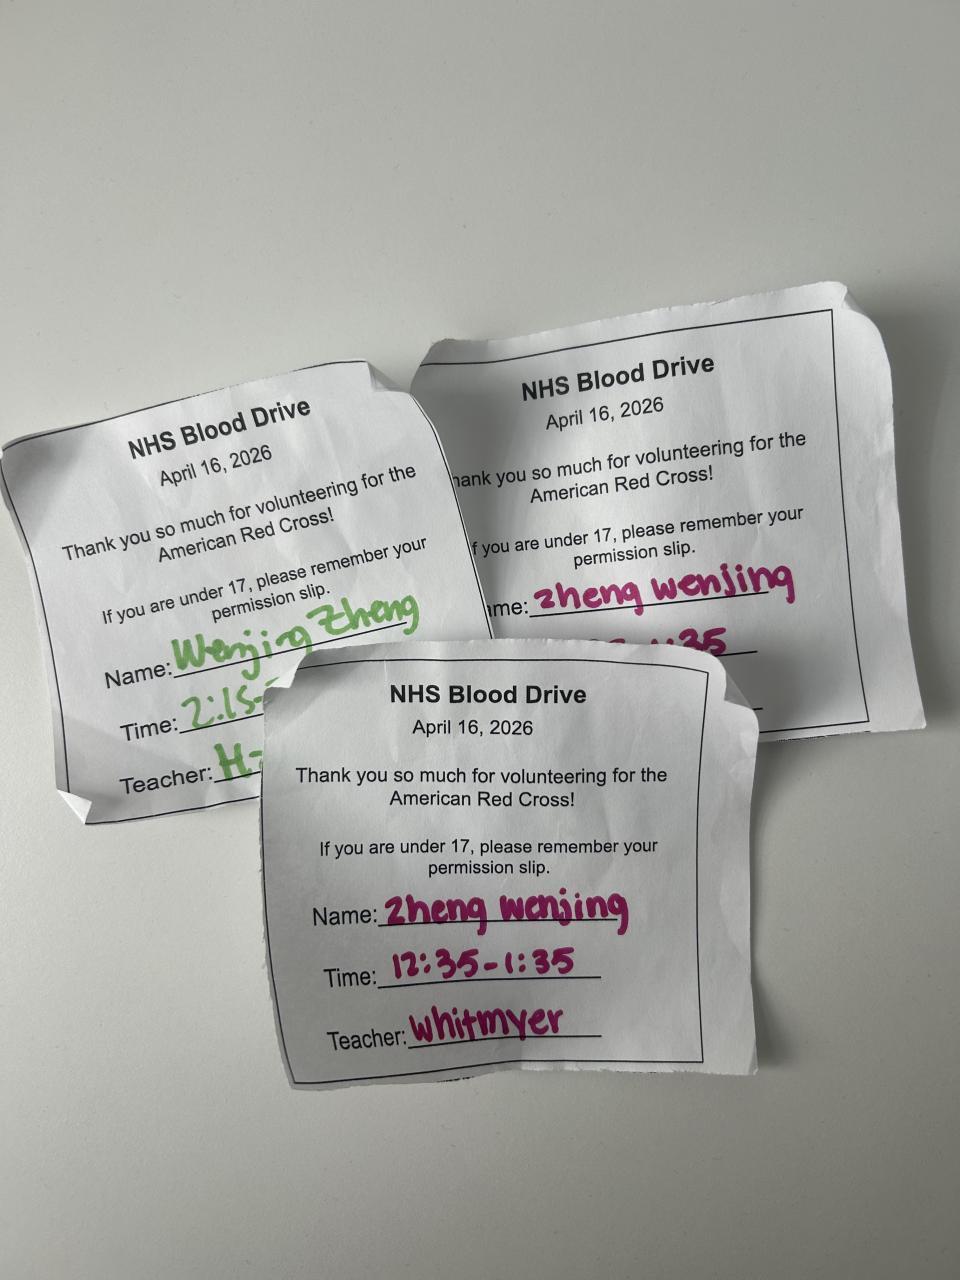 NHS Blood Drive
April 16, 2026
Thank you so much for volunteering for the
American Red Cross!
If you are under 17, please remember your
permission slip.
Name: Wenjing Zheng
Time: 2:15-
Teacher:
NHS Blood Drive
April 16, 2026
hank you so much for volunteering for the
American Red Cross!
f you are under 17, please remember your
permission slip.
me: zheng wenjing
:35
NHS Blood Drive
April 16, 2026
Thank you so much for volunteering for the
American Red Cross!
If you are under 17, please remember your
permission slip.
Name: zheng wenjing
Time: 12:35-1:35
Teacher: whitmyer